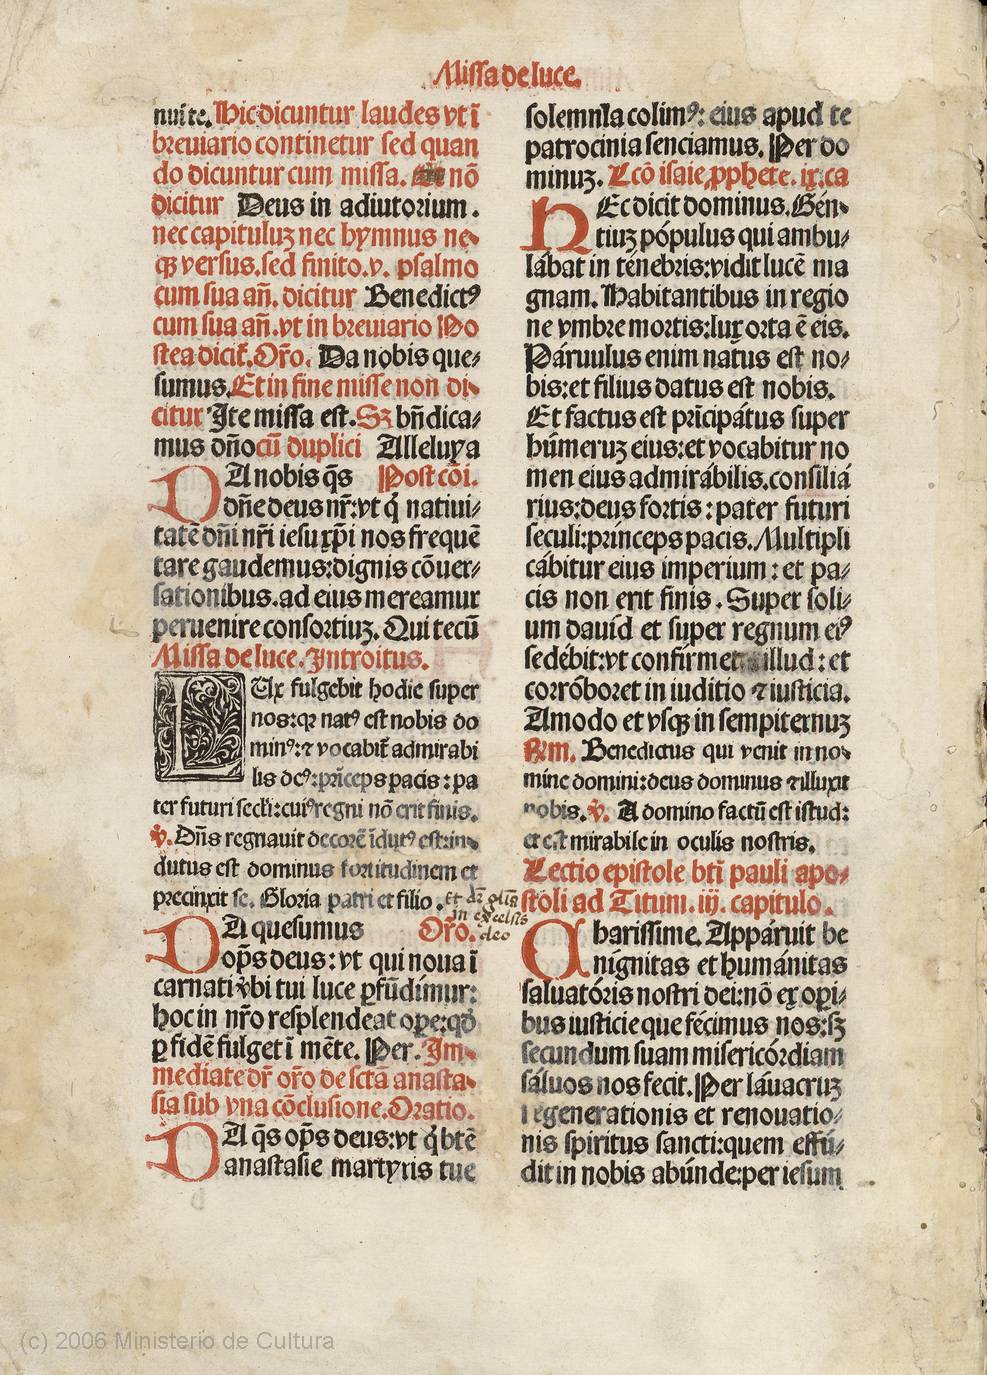 Missa de luce.
nuite. Hic dicuntur laudes vt ī
breuiario continetur sed quan
do dicuntur cum missa. nō
dicitur Deus in adiutorium.
nec capituluꝫ nec hymnus ne-
qꝫ versus. sed finito. v. psalmo
cum sua añ. dicitur Benedictꝰ
cum sua añ. vt in breuiario Po
stea dicit̄. Or̄o. Da nobis que-
sumus. Et in fine misse non di-
citur Ite missa est. Sꝫ bn̄dica-
mus dn̄o cū duplici Alleluya
DA nobis q̄s Post cōi.
dn̄e deus nr̄: vt q̇ natiui-
tatē dn̄i nr̄i iesu xp̄i nos frequē
tare gaudemus: dignis cōuer-
sationibus. ad eius mereamur
peruenire consortiuꝫ. Qui tecū
Missa de luce. Introitus.
LUx fulgebit hodie super
nos: qꝛ natꝰ est nobis do
minꝰ: ⁊ vocabit̄ admirabi
lis deꝰ: prīceps pacis: pa
ter futuri secl̄i: cuiꝰ regni nō erit finis.
℣. Dn̄s regnauit decorē īdutꝰ est: in-
dutus est dominus fortitudinem et
precinxit se. Gloria patri et filio.
Et dr̄ glīa
in excelsis
deo
DA quesumus Or̄o.
op̄s deus: vt qui noua ī
carnati v̄bi tui luce ꝑfūdimur:
hoc in nr̄o resplendeat oꝑe: qd̄
ꝑ fidē fulget ī mēte. Per. Im-
mediate dr̄ or̄o de sctā anasta-
sia sub vna cōclusione. Oratio.
DA q̄s op̄s deus: vt q̇ btē
anastasie martyris tue
solemnia colimꝰ: eius apud te
patrocinia senciamus. Per do
minuꝫ. Lcō isaie ꝓphete. ix. ca
HEc dicit dominus. Gén-
tiuꝫ pópulus qui ambu-
lábat in ténebris: vidit lucē ma
gnam. Habitantibus in regio
ne vmbre mortis: lux orta ē eis.
Páruulus enim natus est no-
bis: et filius datus est nobis.
Et factus est prīcipátus super
húmeruꝫ eius: et vocabitur no
men eius admirábilis. consiliá
rius: deus fortis: pater futuri
seculi: prínceps pacis. Multipli
cábitur eius imperium: et pa-
cis non erit finis. Super soli-
um dauíd et super regnum eiꝰ
sedébit: vt confirmet illud: et
corróboret in iuditio ⁊ iusticia.
Amodo et vsqꝫ in sempiternuꝫ
℟m. Benedictus qui venit in no-
mine domini: deus dominus ⁊ illuxit
nobis. ℣. A domino factū est istud:
et est mirabile in oculis nostris.
Lectio epistole bt̄i pauli apo-
stoli ad Titum. iij. capitulo.
CHarissime. Appáruit be
nígnitas et humánitas
saluatóris nostri dei: nō ex oꝑi-
bus iusticie que fécimus nos: sꝫ
secundum suam misericórdiam
sáluos nos fecit. Per láuacruꝫ
regenerationis et renouatio-
nis spiritus sancti: quem effú-
dit in nobis abúnde: per iesum
(c) 2006 Ministerio de Cultura